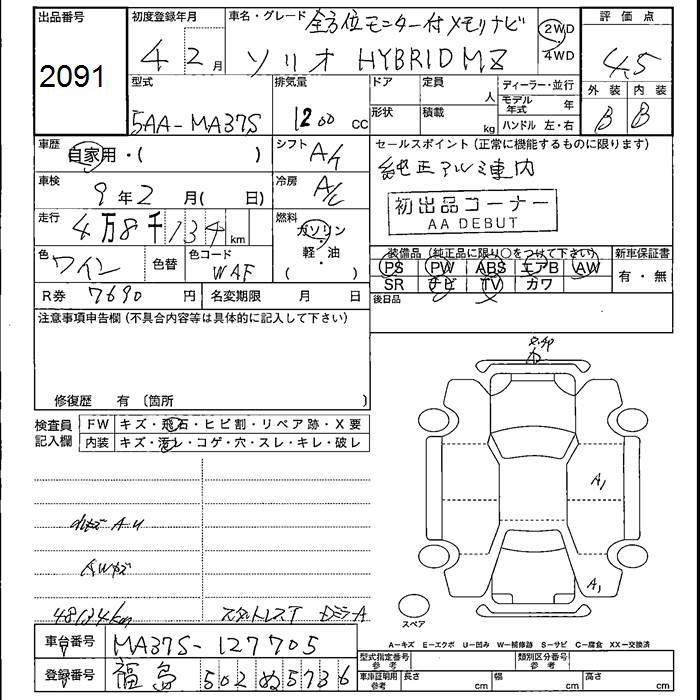 出品番号
2091
初度登録年月
4 2月
車名・グレード 全方位モニター付メモリナビ
ソリオ HYBRID MZ
2WD
・
4WD
評価点
4.5
外装 内装
B B
型式
5AA-MA37S
排気量
1200 cc
ドア 定員
人
形状 積載
kg
ディーラー・並行
モデル年式 年
ハンドル 左・右
車歴
自家用・( )
シフト A/T
セールスポイント (正常に機能するものに限ります)
純正アルミ 車内
初出品コーナー
AA DEBUT
車検
9年2月( 日)
冷房 A/C
走行
4万8千134km
燃料
ガソリン
軽・油
( )
色
ワイン
色替
色コード
WAF
R券 7690円
名変期限 月 日
装備品(純正品に限り○をつけて下さい)
PS PW ABS エアB AW
SR ナビ TV カワ
新車保証書
有・無
後日品
注意事項申告欄 (不具合内容等は具体的に記入して下さい)
修復歴 有 〔箇所 〕
検査員記入欄
FW キズ・飛石・ヒビ割・リペア跡・X要
内装 キズ・汚レ・コゲ・穴・スレ・キレ・破レ
AWキズ
48134km
スタットレスT DミラーA
A1
A1
スペア
A-キズ E-エクボ U-凹み W-補修跡 S-サビ C-腐食 XX-交換済
車台番号 MA37S-127705
登録番号 福島 502 ぬ 5736
型式指定番号 参考
類別区分番号 参考
車庫証明用 参考
長さ cm
幅 cm
高さ cm